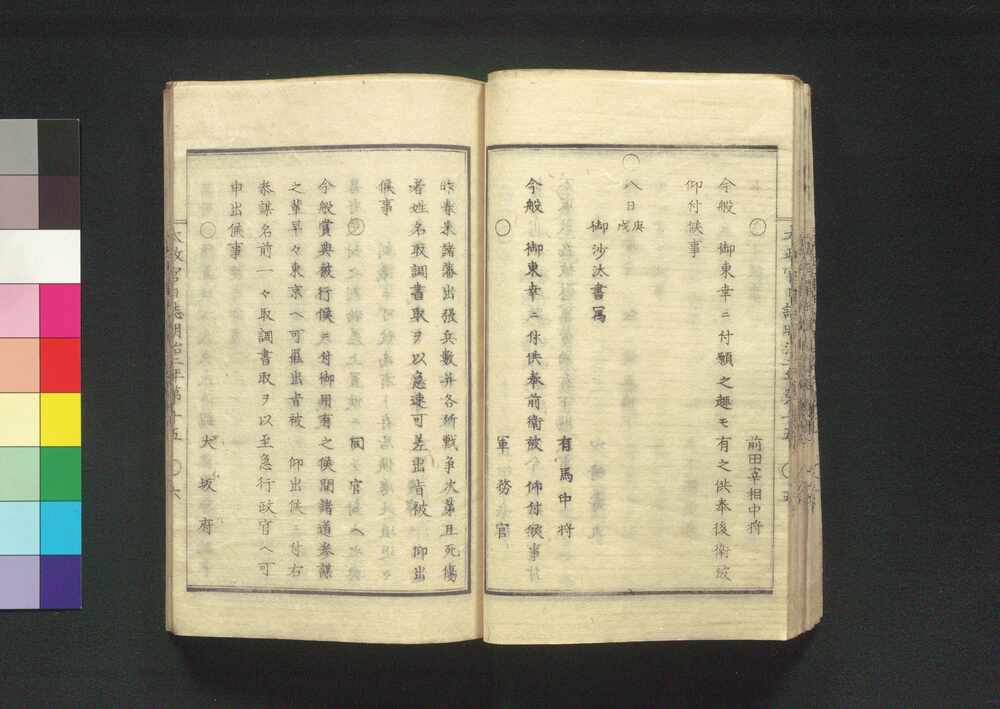 〇 前田宰相中将
今般 御東幸ニ付願之趣モ有之供奉後衛被
仰付候事
〇八日庚戌
御沙汰書写
有馬中将
今般 御東幸ニ付供奉前衛被 仰付候事
〇 軍務官
昨春来諸藩出張兵数并各所戦争次第且死傷
者姓名取調書取ヲ以急速可差出旨被 仰出
候事
〇 同官へ
今般賞典被行候ニ付御用有之候間諸道参謀
之輩早々東京ヘ可罷出旨被 仰出候ニ付右
参謀名前一々取調書取ヲ以至急行政官ヘ可
申出候事
〇 大坂府
太政官日誌明治二年第十五 〇六